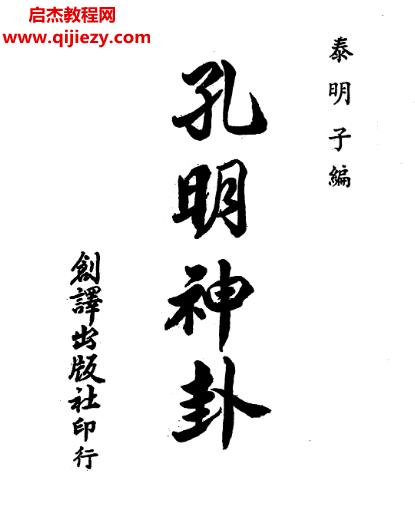 启杰教程网
www.qijiezy.com
泰明子編
孔明神卦
創譯出版社印行